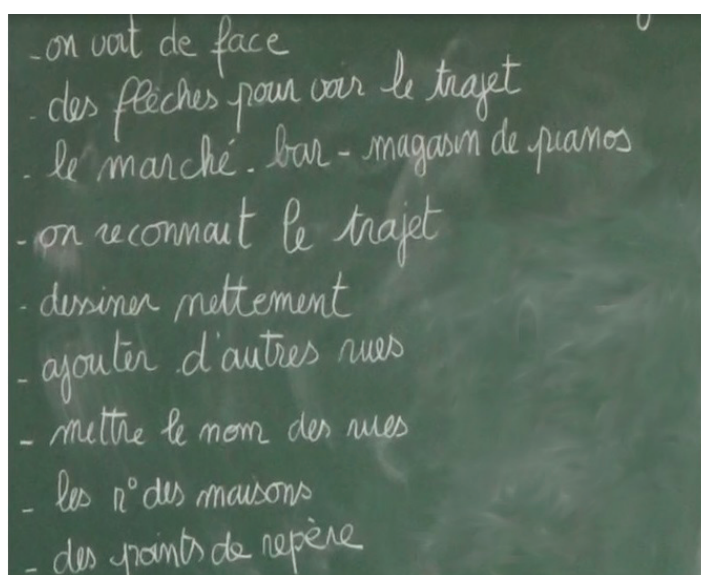 - on voit de face
- des flèches pour voir le trajet
- le marché - bar - magasin de pianos
- on reconnait le trajet
- dessiner nettement
- ajouter d'autres rues
- mettre le nom des rues
- les n° des maisons
- des points de repère